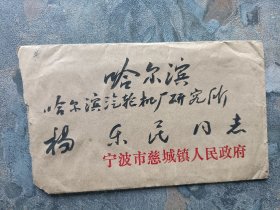 哈尔滨
哈尔滨汽轮机厂研究所
杨乐民同志
宁波市慈城镇人民政府